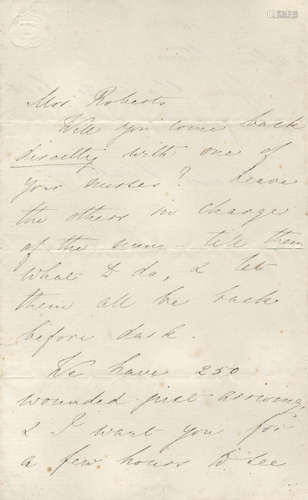 Mrs Roberts
Will you come back
directly with one of
your nurses? Leave
the others in charge
of the        till them
what I do, & let
them all be back
before dark.
We have 250
wounded just arriving,
& I want you for
a few hours to see